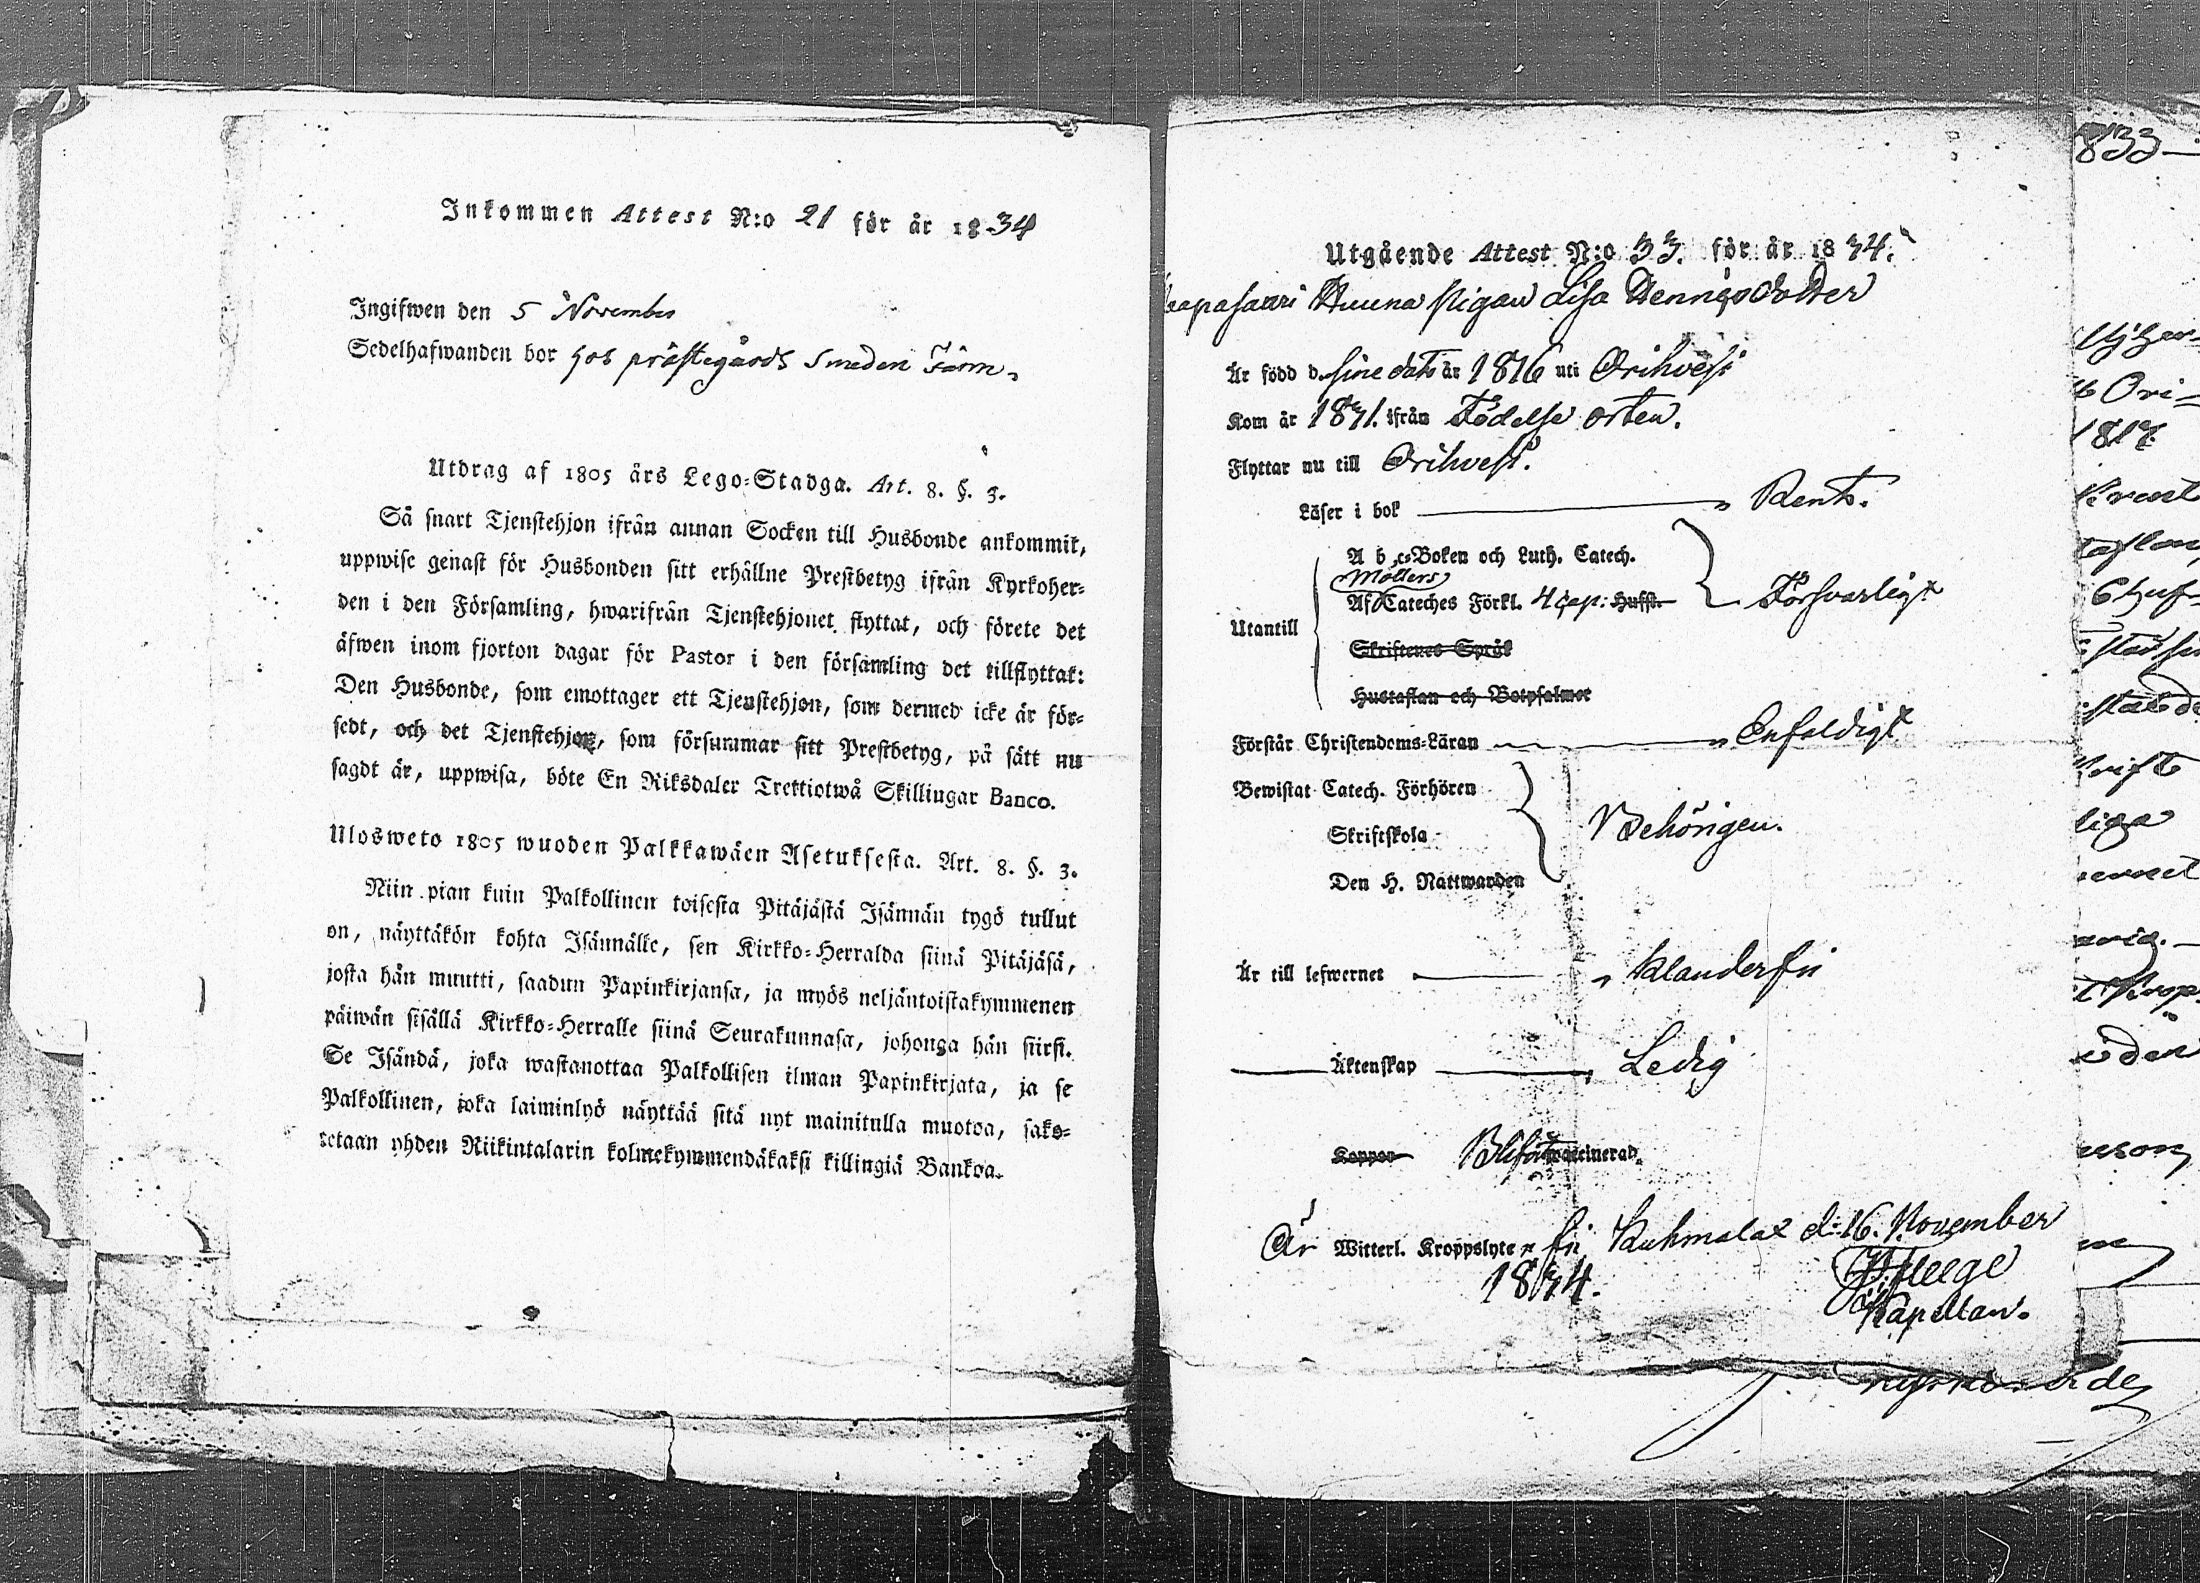 Inkommen Attest N:o 21 för år 1834
Ingifwen den 5 November
Sedelhafwanden bor hos prästegårds Smeden Färm.
Utdrag af 1805 års Lego-Stadga. Art. 8. §. 3.
Så snart Tjenstehjon ifrån annan Socken till Husbonde ankommit,
uppwise genast för Husbonden sitt erhållne Prestbetyg ifrån Kyrkoher-
den i den Församling, hwarifrån Tjenstehjonet flyttat, och förete det
äfwen inom fjorton dagar för Pastor i den församling det tillflyttat:
Den Husbonde, som emottager ett Tjenstehjon, som dermed icke är för-
sedt, och det Tjenstehjon, som försummar sitt Prestbetyg, på sätt nu
sagdt är, uppwisa, böte En Riksdaler Trettiotwå Skillingar Banco.
Ulosweto 1805 wuoden Palkkawäen Asetuksesta. Art. 8. §. 3.
Niin pian kuin Palkollinen toisesta Pitäjästä Isännän tygö tullut
on, näyttäkön kohta Isännälle, sen Kirkko-Herralda siinä Pitäjäsä,
josta hän muutti, saadun Papinkirjansa, ja myös neljäntoistakymmenen
päiwän sisällä Kirkko-Herralle siinä Seurakunnasa, johonga hän siirsi.
Se Isändä, joka wastanottaa Palkollisen ilman Papinkirjata, ja se
Palkollinen, joka laiminlyö näyttää sitä nyt mainitulla muotoa, sako-
tetaan yhden Riikintalarin kolmekymmendäkaksi killingiä Bankoa.
Utgående Attest N:o 33. för år 1834.
Pigan Lisa Hennigsdotter
Är född d. sine dato år 1816 uti Orihvesi
Kom år 1831. ifrån Födelse orten.
Flyttar nu till Orihvesi.
Läser i bok Rent.
Utantill
A b c-Boken och Luth. Catech.
Möllers
Af Cateches Förkl. 4 cap: Hufst. Försvarligt
Skriftenes Språk
Hustaflan och Botpsalmer
Förstår Christendoms-Läran Enfaldigt
Bewistat Catech. Förhören
Skriftskola Behörigen.
Den H. Nattwarden
Är till lefwernet Klanderfri
Äktenskap Ledig
Koppor Vaccinerad.
Är Witterl. Kroppslyte fri Kuhmalax d: 16. November
1834.
Kapellan.
1833
Ori-
1817.